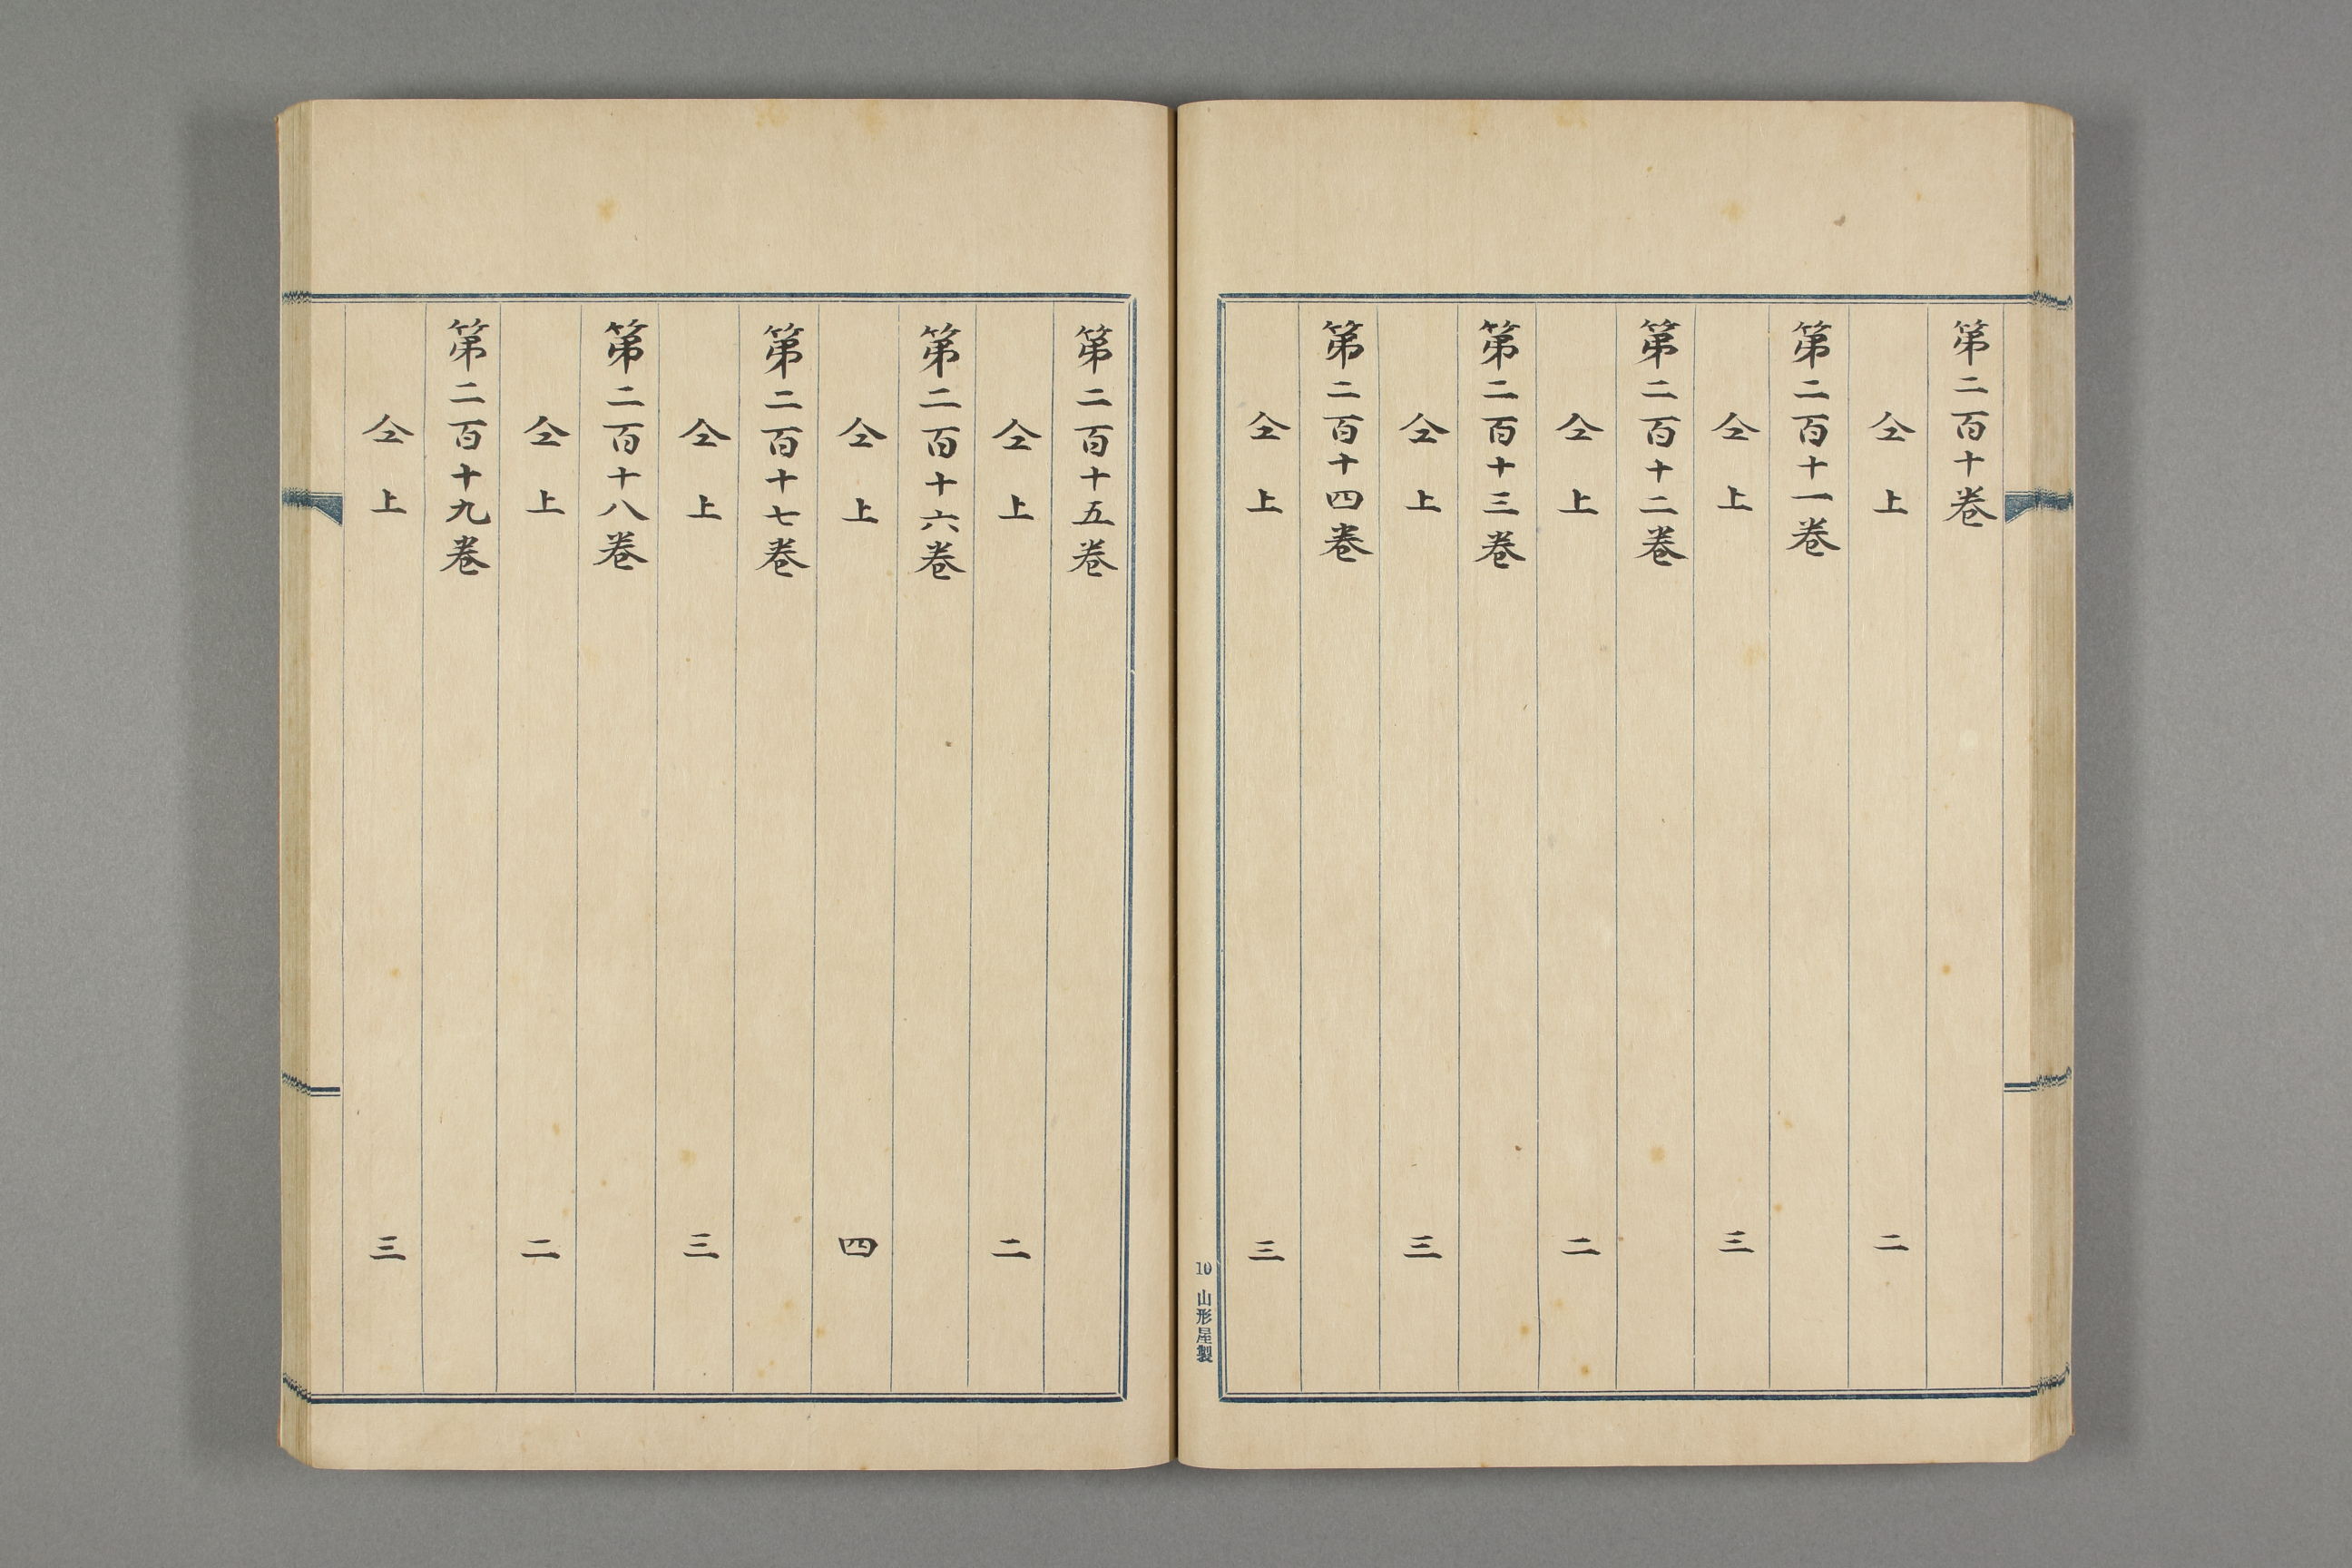 第二百十巻
仝上 二
第二百十一巻
仝上 三
第二百十二巻
仝上 二
第二百十三巻
仝上 三
第二百十四巻
仝上 三
10 山形屋製
第二百十五巻
仝上 二
第二百十六巻
仝上 四
第二百十七巻
仝上 三
第二百十八巻
仝上 二
第二百十九巻
仝上 三